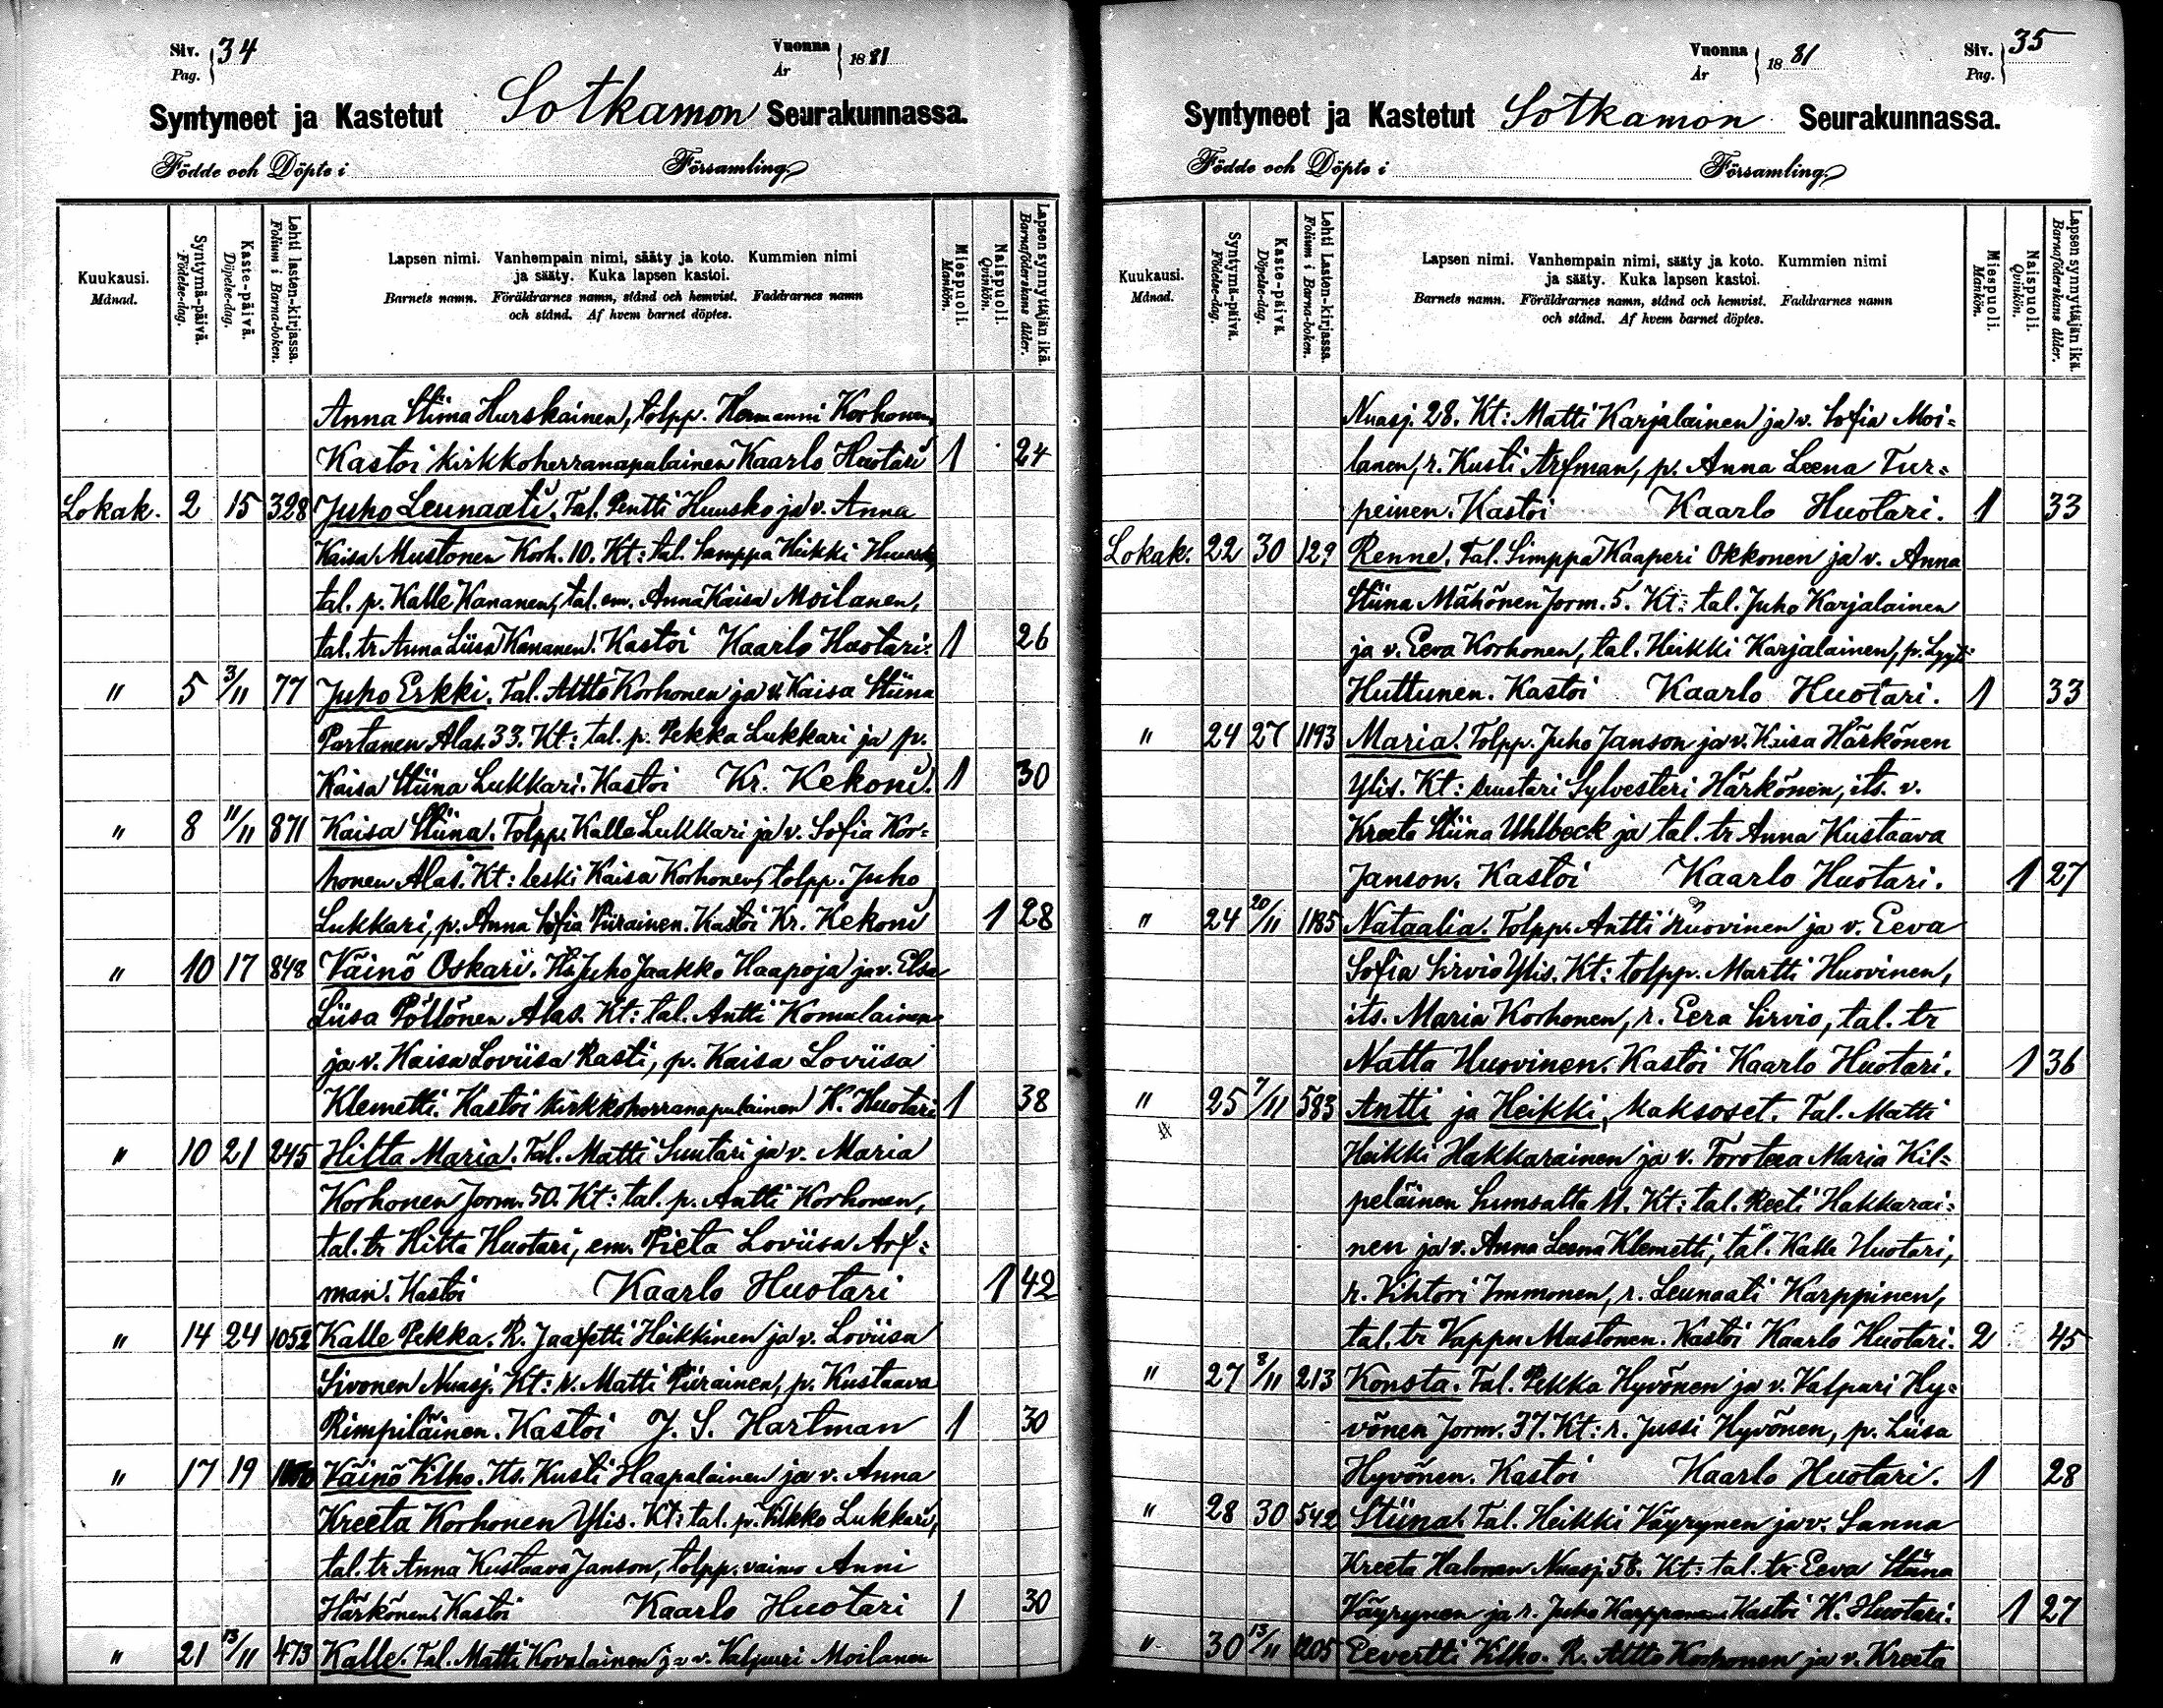 Siv. 34 Vuonna 1881
Pag. År
Syntyneet ja Kastetut Sotkamon Seurakunnassa.
Födde och Döpte i Församling.
Kuukausi. Månad.
Syntymä-päivä. Födelse-dag.
Kaste-päivä. Döpelse-dag.
Lehti lasten-kirjassa. Folium i Barna-boken.
Lapsen nimi. Vanhempain nimi, sääty ja koto. Kummien nimi
ja sääty. Kuka lapsen kastoi.
Barnets namn. Föräldrarnes namn, stånd och hemvist. Faddrarnes namn
och stånd. Af hvem barnet döptes.
Miespuoli. Mankön.
Naispuoli. Qvinkön.
Lapsen synnyttäjän ikä. Barnaföderskans ålder.
Anna Stiina Hurskainen, tolpp. Hermanni Korhonen,
Kastoi kirkkoherranapulainen Kaarlo Huotari 1 24
Lokak. 2 15 328 Juho Leunaati. Tal. Pentti Huusko ja v. Anna
Kaisa Mustonen Korh. 10. Kt: tal. Samppa Heikki Huusko,
tal. p. Kalle Kananen, tal. em. Anna Kaisa Moilanen,
tal. tr Anna Liisa Kananen. Kastoi Kaarlo Huotari. 1 26
" 5 3/11 77 Juho Erkki. Tal. Atto Korhonen ja v. Kaisa Stiina
Partanen Alas. 33. Kt: tal. p. Pekka Lukkari ja p.
Kaisa Stiina Lukkari. Kastoi Kr. Kekoni. 1 30
" 8 11/11 871 Kaisa Stiina. Tolpp. Kalle Lukkari ja v. Sofia Kor=
honen Alas. Kt: leski Kaisa Korhonen, tolpp. Juho
Lukkari, p. Anna Sofia Piirainen. Kastoi Kr. Kekoni 1 28
" 10 17 848 Väinö Oskari. Its. Juho Jaakko Haapoja ja v. Elsa
Liisa Pöllönen Alas. Kt: tal. Antti Komulainen
ja v. Kaisa Loviisa Rasti, p. Kaisa Loviisa
Klemetti. Kastoi kirkkoherranapulainen K. Huotari 1 38
" 10 21 245 Hitta Maria. Tal. Matti Suutari ja v. Maria
Korhonen Jorm. 50. Kt: tal. p. Antti Korhonen,
tal. tr Hitta Huotari, em. Pieta Loviisa Arf=
man. Kastoi Kaarlo Huotari 1 42
" 14 24 1052 Kalle Pekka. R. Jaafetti Heikkinen ja v. Loviisa
Sivonen Nuasj. Kt: r. Matti Piirainen, p. Kustaava
Rimpiläinen. Kastoi J. S. Hartman 1 30
" 17 19 Väinö Vilho. Its. Kusti Haapalainen ja v. Anna
Kreeta Korhonen Ylis. Kt: tal. p. Vilkko Lukkari,
tal. tr Anna Kustaava Janson, tolpp. vaimo Anni
Härkönen. Kastoi Kaarlo Huotari 1 30
" 21 13/11 473 Kalle. Tal. Matti Kovalainen ja v. Valpuri Moilanen
Vuonna 1881 Siv. 35
År Pag.
Syntyneet ja Kastetut Sotkamon Seurakunnassa.
Födde och Döpte i Församling.
Kuukausi. Månad.
Syntymä-päivä. Födelse-dag.
Kaste-päivä. Döpelse-dag.
Lehti Lasten-kirjassa. Folium i Barna-boken.
Lapsen nimi. Vanhempain nimi, sääty ja koto. Kummien nimi
ja sääty. Kuka lapsen kastoi.
Barnets namn. Föräldrarnes namn, stånd och hemvist. Faddrarnes namn
och stånd. Af hvem barnet döptes.
Miespuoli. Mankön.
Naispuoli. Qvinkön.
Lapsen synnyttäjän ikä. Barnaföderskans ålder.
Nuasj. 28. Kt: Matti Karjalainen ja v. Sofia Moi=
lanen, r. Kusti Arfman, p. Anna Leena Tur=
peinen. Kastoi Kaarlo Huotari. 1 33
Lokak. 22 30 129 Renne. Tal. Simppa Kaaperi Okkonen ja v. Anna
Stiina Mähönen Jorm. 5. Kt: tal. Juho Karjalainen
ja v. Eeva Korhonen, tal. Heikki Karjalainen, p. Lyyti
Huttunen. Kastoi Kaarlo Huotari. 1 33
" 24 27 1193 Maria. Tolpp. Juho Janson ja v. Kaisa Härkönen
Ylis. Kt: suutari Sylvesteri Härkönen, its. v.
Kreeta Stiina Uhlbeck ja tal. tr Anna Kustaava
Janson. Kastoi Kaarlo Huotari. 1 27
" 24 20/11 1185 Nataalia. Tolpp. Antti Huovinen ja v. Eeva
Sofia Sirviö Ylis. Kt: tolpp. Martti Huovinen,
its. Maria Korhonen, r. Eera Sirvio, tal. tr
Natta Huovinen. Kastoi Kaarlo Huotari. 1 36
" 25 7/11 583 Antti ja Heikki, kaksoset. Tal. Matti
Heikki Hakkarainen ja v. Toroteea Maria Kil=
peläinen Sumsalta 11. Kt: tal. Reeti Hakkarai=
nen ja v. Anna Leena Klemetti, tal. Kalle Huotari,
r. Vihtori Immonen, r. Leunaati Karppinen,
tal. tr Vappu Mustonen. Kastoi Kaarlo Huotari. 2 45
" 27 8/11 213 Konsta. Tal. Pekka Hyvönen ja v. Valpuri Hy=
vönen Jorm. 37. Kt: r. Jussi Hyvönen, p. Liisa
Hyvönen. Kastoi Kaarlo Huotari. 1 28
" 28 30 542 Stiina. Tal. Heikki Väyrynen ja v. Sanna
Kreeta Halonen Nuasj. 58. Kt: tal. tr Eeva Stiina
Väyrynen ja r. Juho Karppanen. Kastoi K. Huotari. 1 27
" 30 13/11 1205 Eevertti Vilho. R. Atto Korhonen ja v. Kreeta